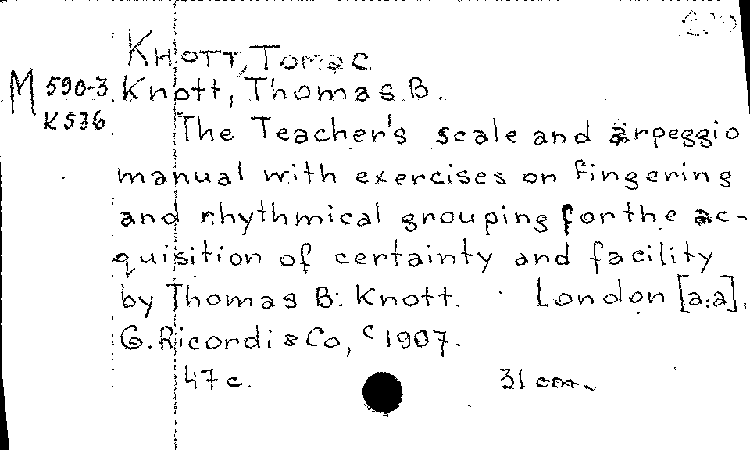 KHOTT, Tomac
M 590-3 Knott, Thomas B.
K 536
The Teacher's scale and arpeggio
manual with exercises on fingering
and rhythmical grouping for the ac-
quisition of certainty and facility
by Thomas B. Knott. London [a.a],
G. Ricordi & Co, c 1907.
47 c. 31 cm.